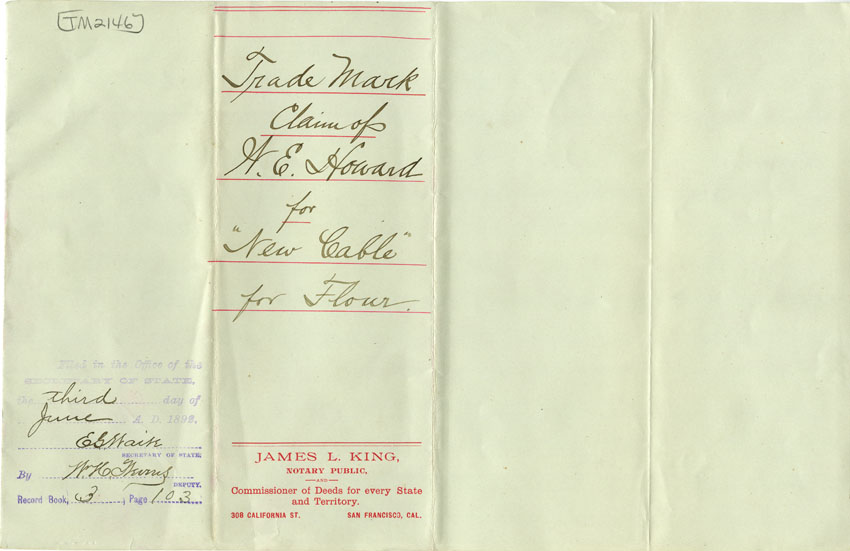 [TM2146]
Trade Mark
Claim of
W. E. Howard
for
"New Cable"
for Flour.
Filed in the Office of the
SECRETARY OF STATE,
the third day of
June A. D. 1892.
E G Waite
SECRETARY OF STATE.
By W. H.
DEPUTY.
Record Book, 3, Page 103
JAMES L. KING,
NOTARY PUBLIC,
—AND—
Commissioner of Deeds for every State
and Territory.
308 CALIFORNIA ST. SAN FRANCISCO, CAL.